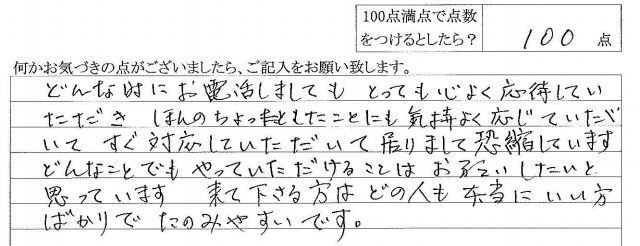 100点満点で点数
をつけるとしたら？
100 点
何かお気づきの点がございましたら、ご記入をお願い致します。
どんな時にお電話しましても とっても心よく応待してい
ただき ほんのちょっとしたことにも気持よく応じていただ
いて すぐ対応していただいて居りまして恐縮しています
どんなことでもやっていただけることは お願いしたいと
思っています 来て下さる方は どの人も本当にいい方
ばかりで たのみやすいです。